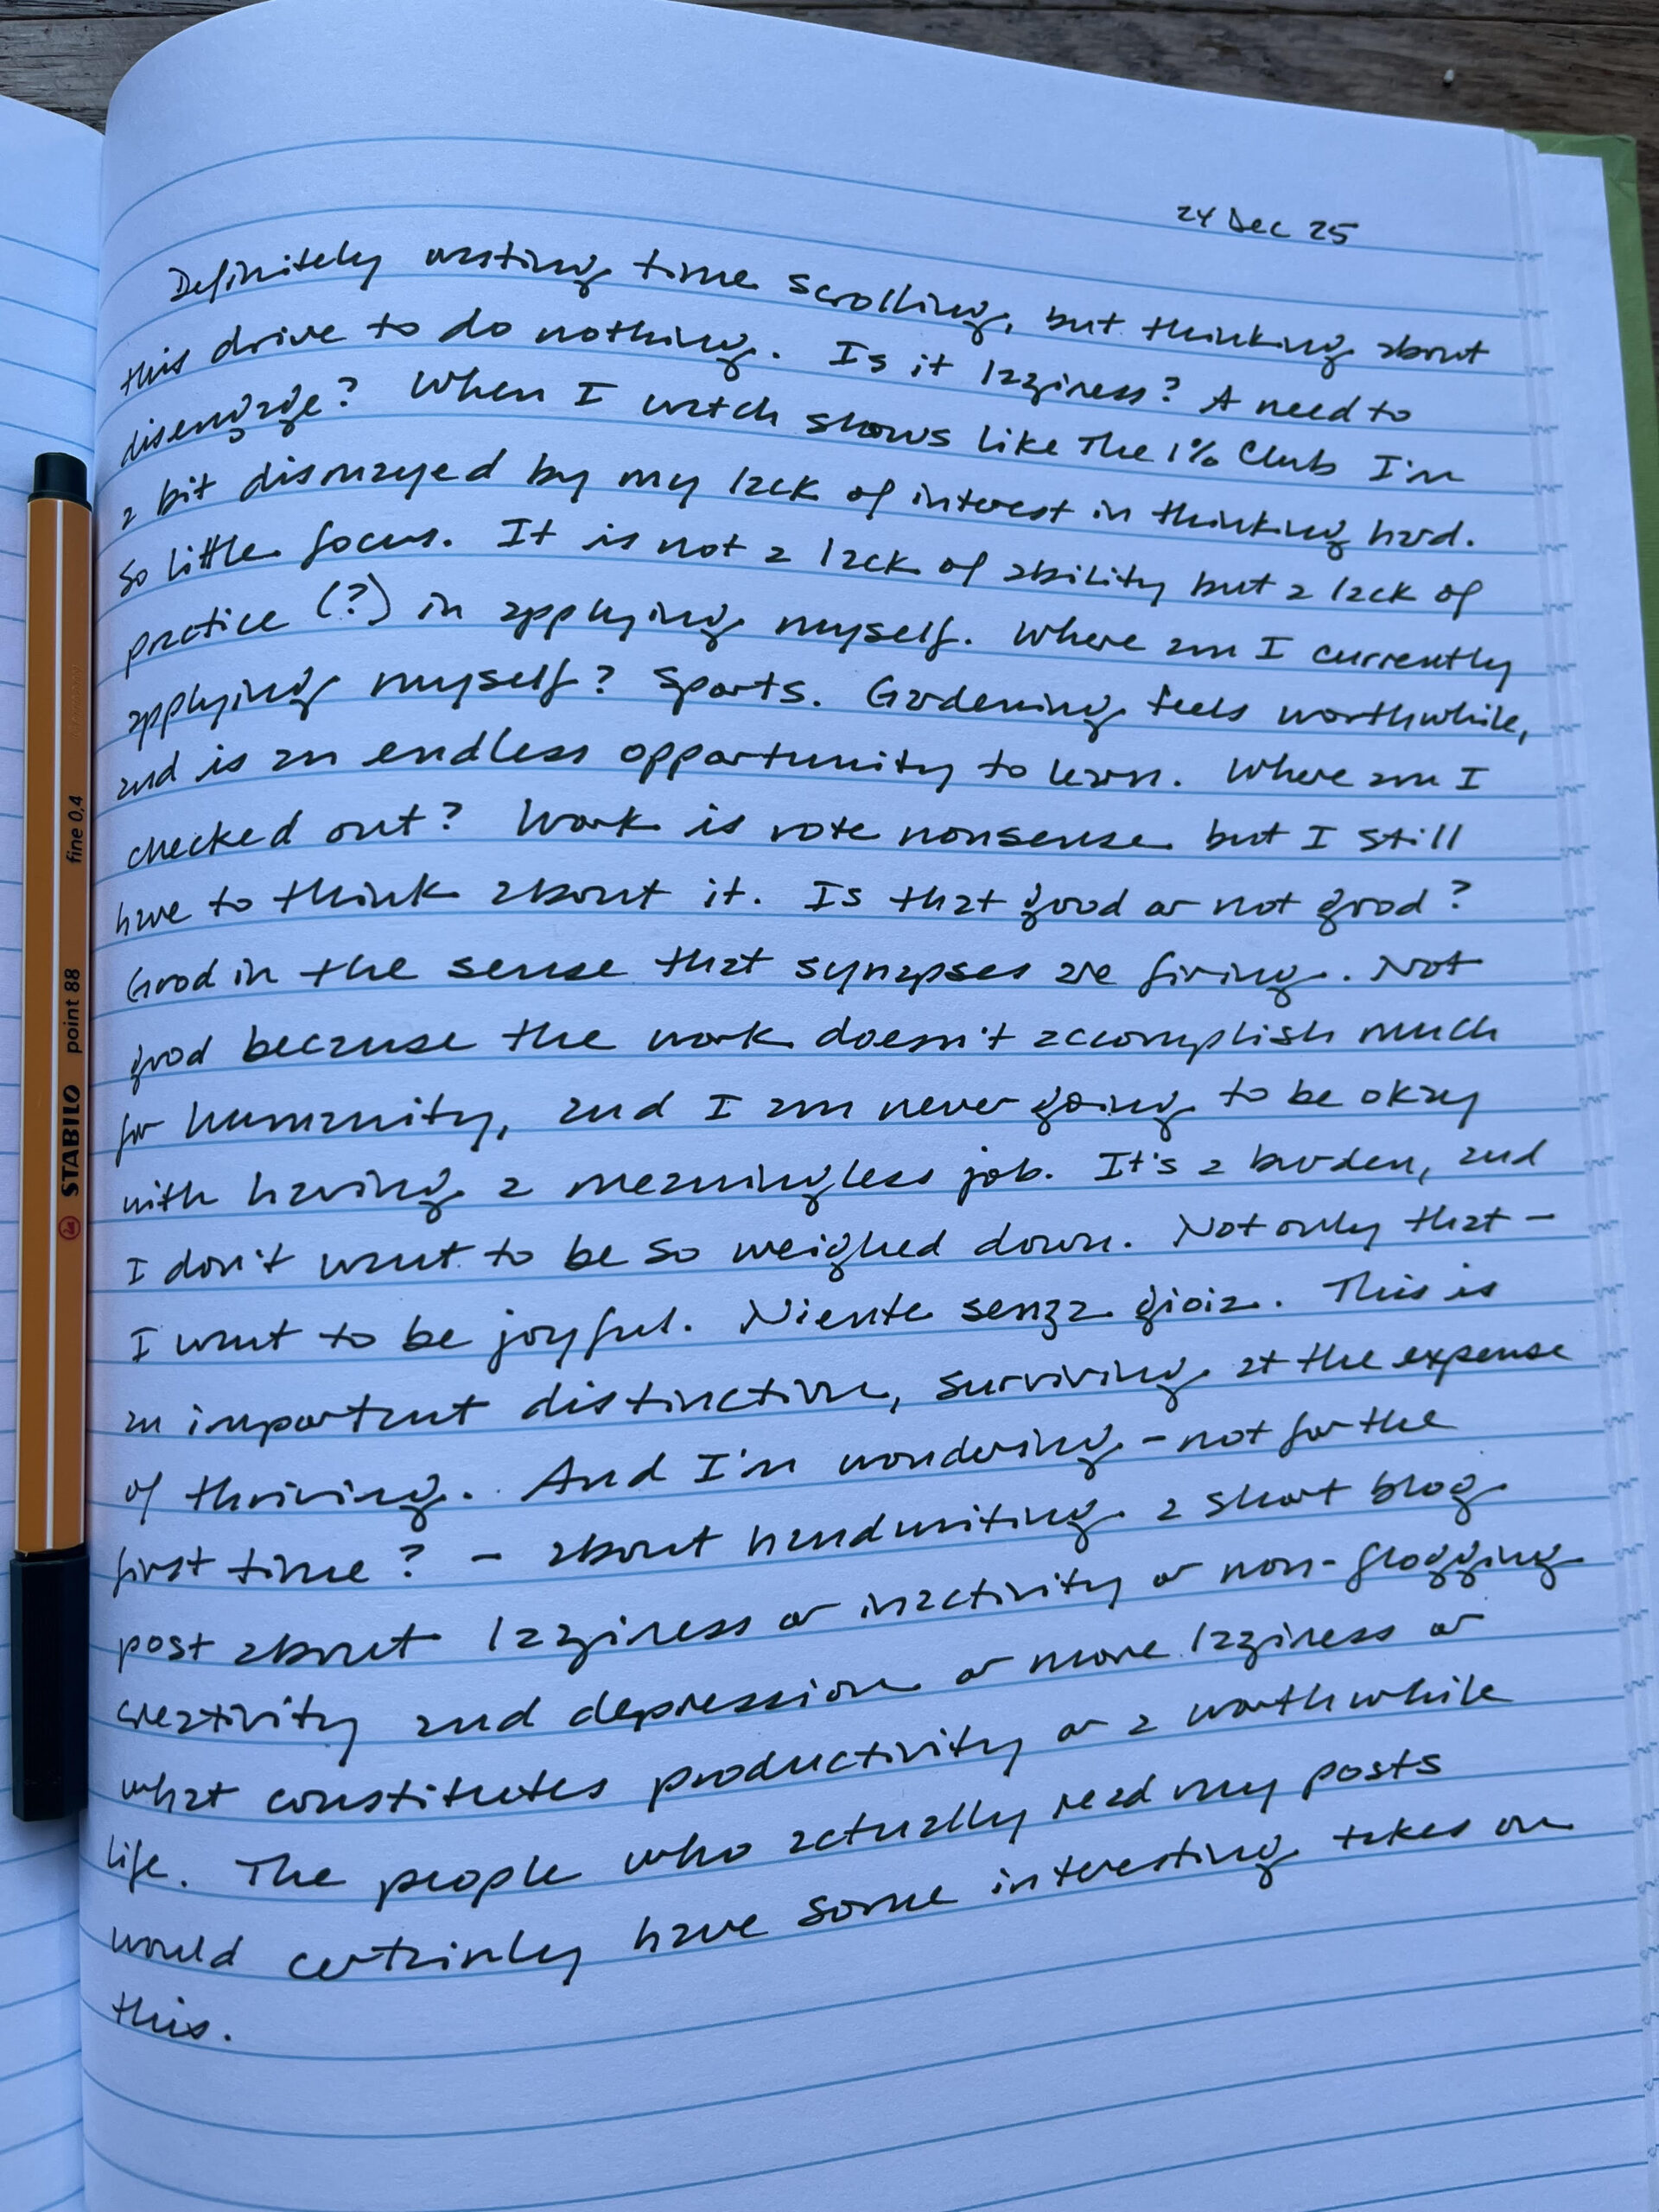 24 Dec 25
Definitely wasting time scrolling, but thinking about
this drive to do nothing. Is it laziness? A need to
disengage? When I watch shows like The 1% Club I'm
a bit dismayed by my lack of interest in thinking hard.
So little focus. It is not a lack of ability but a lack of
practice (?) in applying myself. Where am I currently
applying myself? Sports. Gardening feels worthwhile,
and is an endless opportunity to learn. Where am I
checked out? Work is rote nonsense but I still
have to think about it. Is that good or not good?
Good in the sense that synapses are firing. Not
good because the work doesn't accomplish much
for humanity, and I am never going to be okay
with having a meaningless job. It's a burden, and
I don't want to be so weighed down. Not only that –
I want to be joyful. Niente senza gioia. This is
an important distinction, surviving at the expense
of thriving. And I'm wondering – not for the
first time? – about handwriting a short blog
post about laziness or inactivity or non-flogging
creativity and depression or more laziness or
what constitutes productivity or a worthwhile
life. The people who actually read my posts
would certainly have some interesting takes on
this.
STABILO point 88 fine 0,4